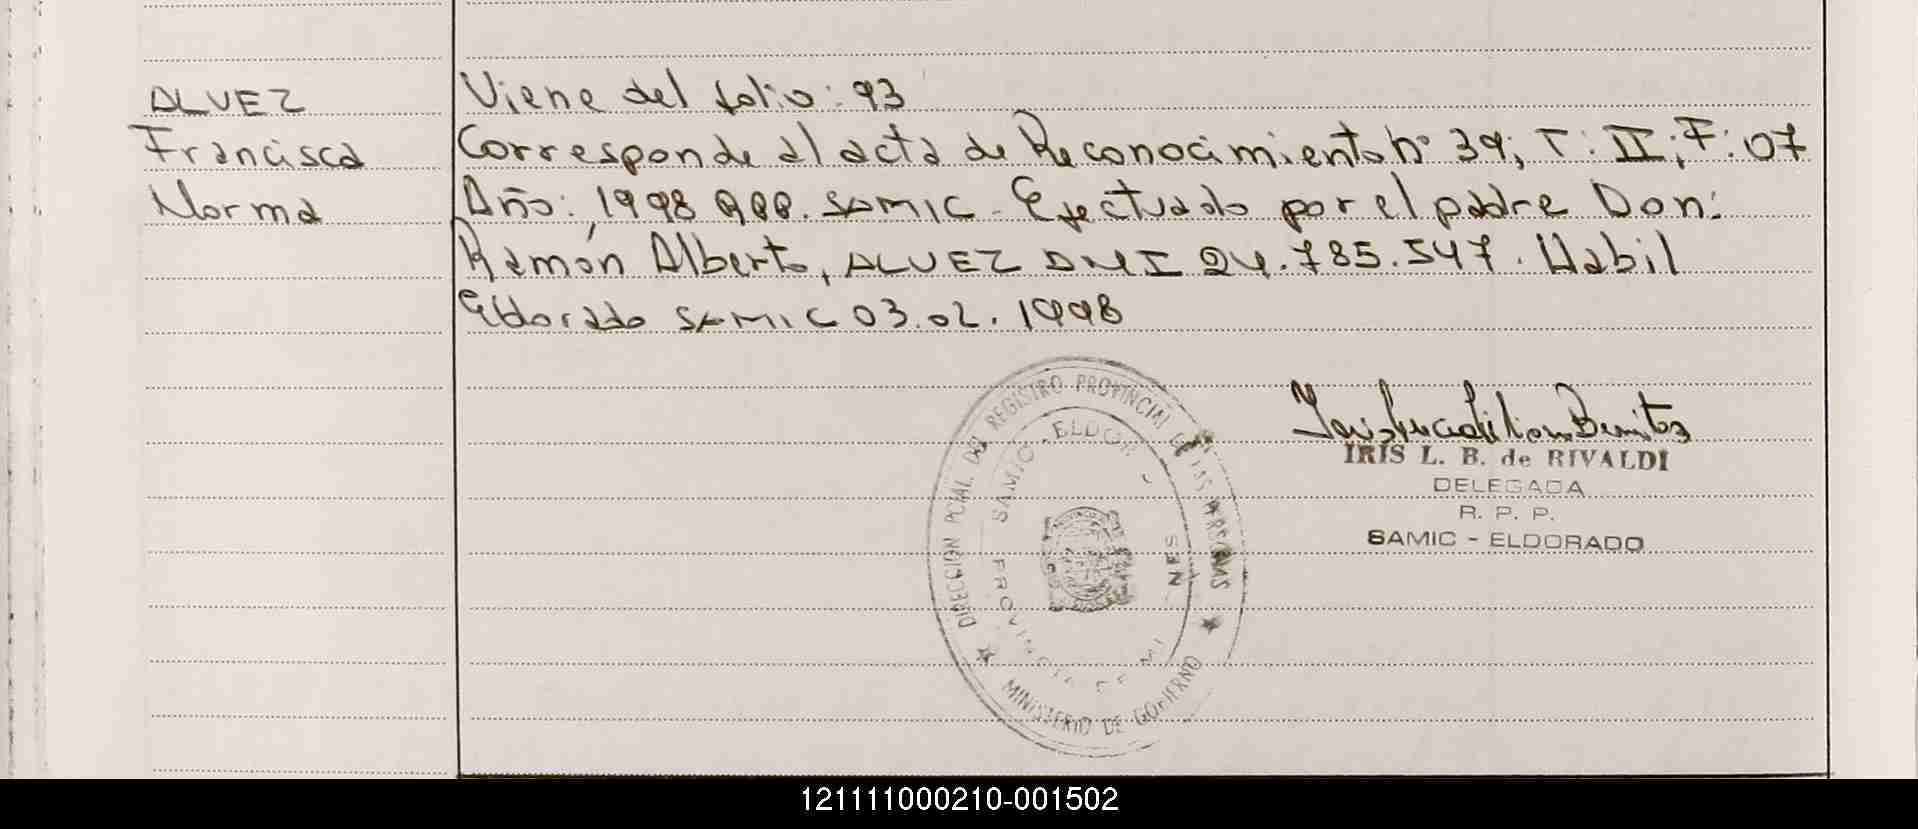 ALVEZ
Francisca
Norma
Viene del folio: 93
Corresponde al acta de Reconocimiento nº 39; T: II; F: 07
Año: 1998 RPP. SAMIC - Efectuado por el padre Don:
Ramón Alberto, ALVEZ DNI 24.785.547. Habil
Eldorado SAMIC 03.02.1998
DIRECCION PCIAL. DEL REGISTRO PROVINCIAL DE LAS PERSONAS
SAMIC - ELDOR
MINISTERIO DE GOBIERNO
IRIS L. B. de RIVALDI
DELEGADA
R. P. P.
SAMIC - ELDORADO
121111000210-001502